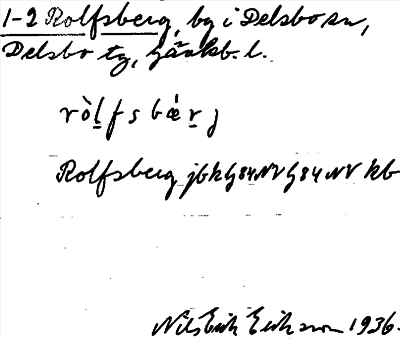 1-2 Rolfsberg, by i Delsbo sn,
Delsbo tg, Gävleb. l.
ròl̲fsbǽr̲j
Rolfsberg jbkG84NV G84NV kb
Nils Erik Eriksson 1936.